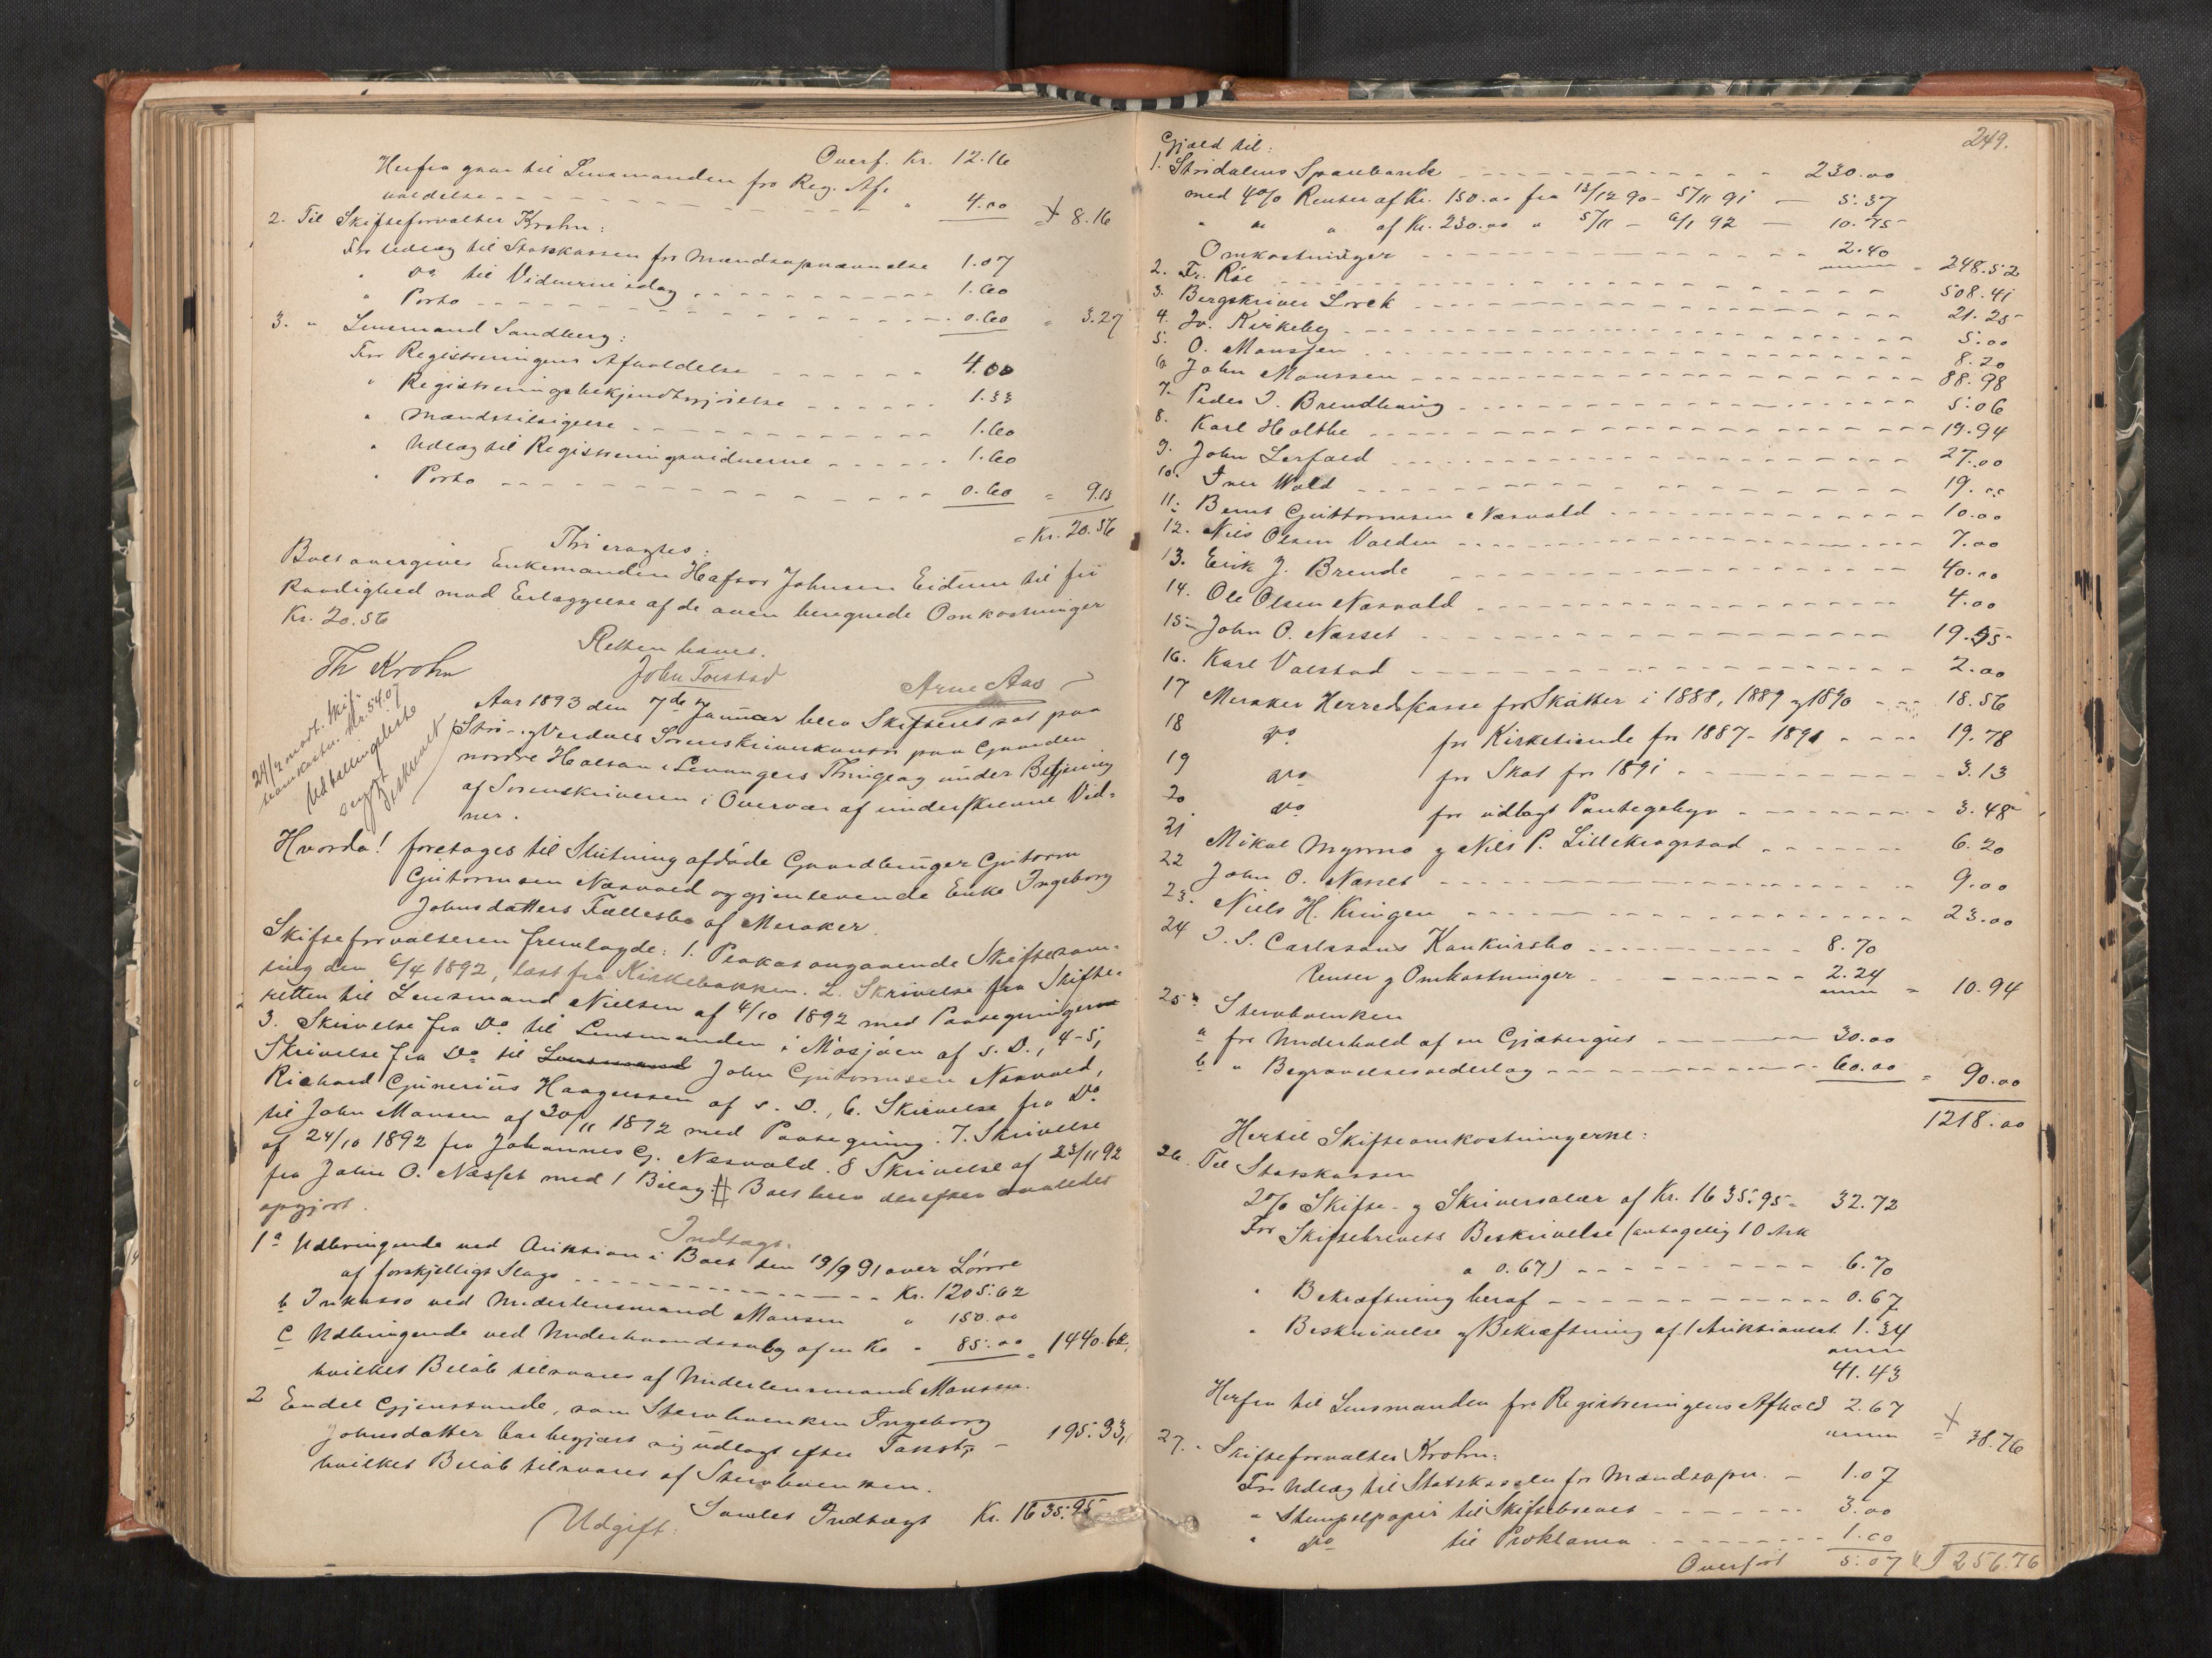 Overf. Kr. 12.16
Herfra gaar til Lensmanden for Reg. Af-
holdelse " 4.00 + 8.16
2. Til Skifteforvalter Krohn:
For Udlæg til Statskassen for Mandsopnævnelse 1.07
" Do til Vidnerne idag 1.60
" Porto 0.60 = 3.27
3. " Lensmand Sandberg:
For Registreringens Afholdelse 4.00
" Registreringsbekjendtgjørelse 1.33
" Mandstilsigelse 1.60
" Udlæg til Registreringsvidnerne 1.60
" Porto 0.60 = 9.13
= Kr. 20.56
Thi eragtes:
Boet overgives Enkemanden Hafsor Johnsen Eidum til fri
Raadighed mod Erlæggelse af de oven beregnede Omkostninger
Kr. 20.56
Retten hævet.
Th Krohn John Forstad Arne Aas
Aar 1893 den 7de Januar blev Skifteret sat paa
Stør- og Verdals Sorenskriverkontor paa Gaarden
nordre Halsan i Levangers Thinglag under Betjening
af Sorenskriveren i Overvær af underskrevne Vid-
ner.
Hvorda! foretages til Slutning afdøde Gaardbruger Gutorm
Gutormsen Næsvold og gjenlevende Enke Ingeborg
Johnsdatters Fællesbo af Meraker.
Skifteforvalteren fremlagde: 1. Plakat angaaende Skiftesam-
ling den 6/4 1892, læst fra Kirkebakken. 2. Skrivelse fra Skifte-
retten til Lensmand Nielsen af 4/10 1892 med Paategninger
3. Skrivelse fra Do til Lensmanden i Mosjøen af s. D., 4-5,
Skrivelse fra Do til Lensmand John Gutormsen Næsvold,
Richard Gunerius Haagensen af s. D., 6. Skrivelse fra Do
til John Mansen af 30/11 1892 med Paategning. 7. Skrivelse
af 24/10 1892 fra Johannes G. Næsvold. 8 Skrivelse af 23/11 92
fra John O. Næsset med 1 Bilag. # Boet blev derefter saaledes
opgjort.
Indtægt.
1 a Udbringende ved Auktion i Boet den 19/9 91 over Løsøre
af forskjelligt Slags Kr. 1205.62
b Inkasso ved Underlensmand Mansen " 150.00
c Udbringende ved Underhaandssalg af en Ko " 85.00 = 1440.62,
hvilket Beløb tilsvares af Underlensmand Mansen.
2 Endel Gjenstande, som Stervboenken Ingeborg
Johnsdatter har begjært sig udlagt efter Taxt, - 195.33,
hvilket Beløb tilsvares af Stervboenken.
Samlet Indtægt Kr. 1635.95
Udgift:
249.
Gjæld til:
1. Stördalens Sparebank 230.00
med 4% Renter af Kr. 150.00 fra 13/12 90 - 5/11 91 — 5.37
" " " af Kr. 230.00 " 5/11 - 6/1 92 — 10.75
Omkostninger 2.40 = 248.52
2. Fr. Röe 508.41
3. Bergskriver Lorck 21.25
4. Jo. Kirkeby 5.00
5. O. Manssen 8.20
6 John Manssen 88.98
7. Peder J. Brendhaug 5.06
8. Karl Holthe 19.94
9. John Lerfald 27.00
10. Iver Wold 19.
11. Bernt Guttormsen Næsvold 10.00
12. Nils Olsen Volden 7.00
13. Erik J. Brende 40.00
14. Ole Olsen Næsvold 4.00
15 John O. Næsset 19.
16. Karl Volstad 2.00
17 Meraker Herredskasse for Skatter i 1888, 1889 og 1890 18.56
18 Do for Kirketiende for 1887-1891 19.78
19 Do for Skat for 1891 3.13
20 Do for udlagt Pantegebyr 3.48
21 Mikal Myrmo og Nils P. Lillekragstad 6.20
22 John O. Næsset 9.00
23. Niels H. Kringen 23.00
24 J. S. Carlssons Konkursbo 8.70
Renter og Omkostninger 2.24 = 10.94
25 Stervboenken
a for Underhold af en Gjætergut 30.00
b " Begravelsesvederlag 60.00 = 90.00
1218.00
Hertil Skifteomkostningerne:
26. Til Statskassen
2% Skifte- og Skriversalær af Kr. 1635.95 = 32.72
For Skiftebrevets Beskrivelse (antagelig 10 Ark
a 0.67) 6.70
" Bekræftning heraf 0.67
" Beskrivelse og Bekræftning af 1 Auktionset. 1.34
41.43
Herfra til Lensmanden for Registreringens Afhold 2.67 = 38.76
27. " Skifteforvalter Krohn:
For Udlæg til Statskassen for Mandsopn. — 1.07
" Stempelpapir til Skiftebrevet 3.00
" Do til Proklama 1.00
Overført 5.07 1256.76